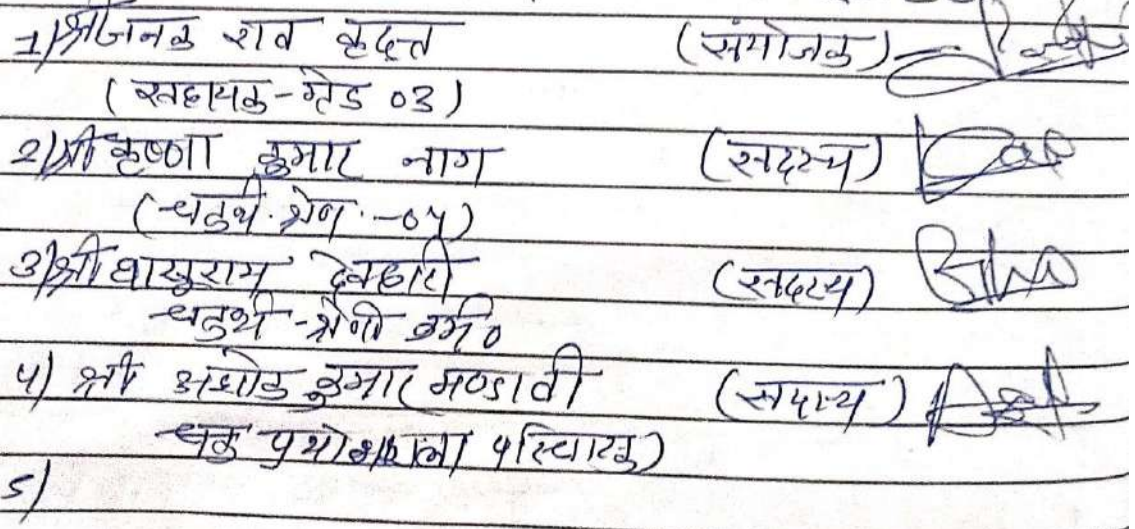 1) श्री जनक राव कृदत्त (संयोजक)
(सहायक-ग्रेड 03)
2) श्री कृष्णा कुमार नाग (सदस्य)
(चतुर्थ. श्रेण. -04)
3) श्री घासुराम देवहारी (सदस्य)
चतुर्थ-श्रेणी कर्म०
4) श्री अशोक कुमार मण्डावी (सदस्य)
प्रयोगशाला परिचारक)
5)